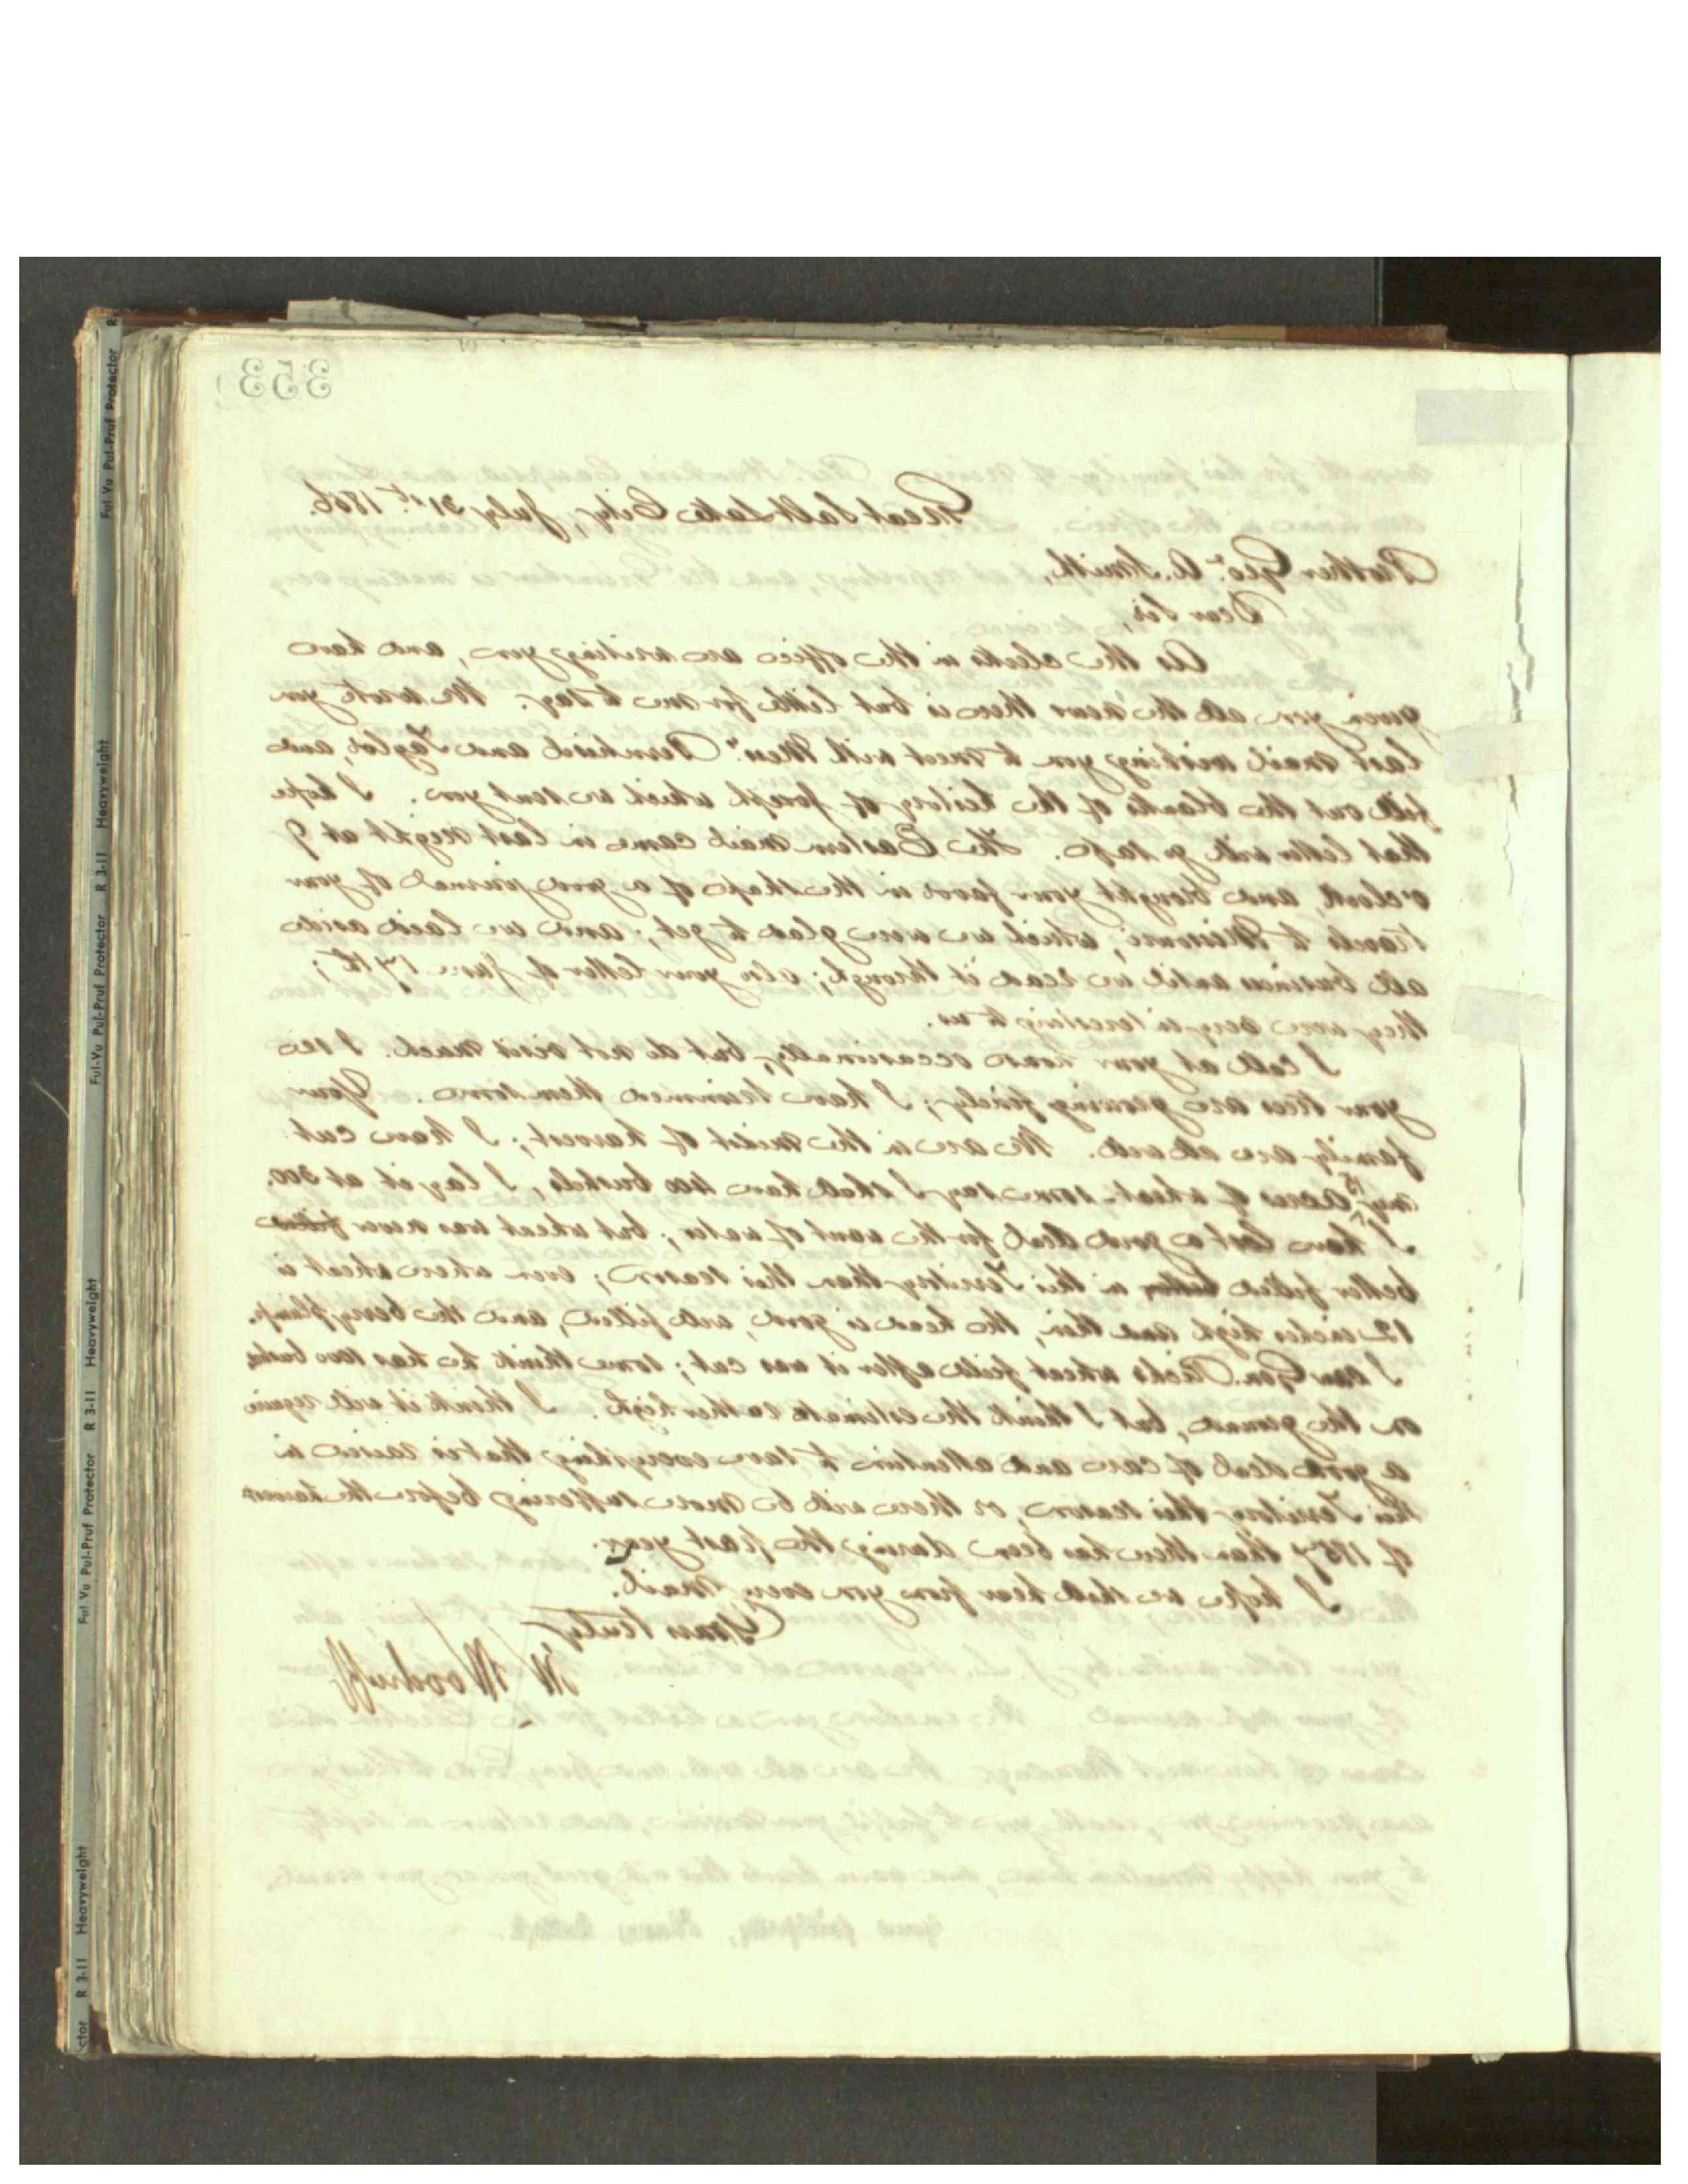 353
Great Salt Lake City, July 31st. 1856.
Brother Geo. A. Smith,
Dear Sir,
As the clerks in the office are writing you, and have
given you all the news there is but little for me to say. We wrote you
last mail wishing you to meet with Messrs. Bernhisel and Taylor, and
fill out the blanks of the history of Joseph which we sent you. I hope
that letter will go safe. The Eastern mail came in last night at 9
o'clock, and brought your favor in the shape of a good journal of your
travels to Missouri, which we were glad to get; and we laid aside
all business until we read it through; also your letter of June 17th;
they were very interesting to us.
I call at your house occasionally, but do not visit much. I see
your trees are growing finely; I have trimmed them some. Your
family are all well. We are in the midst of harvest; I have cut
my 15 acres of wheat. some say I shall have 400 bushels, I lay it at 300.
I have lost a good deal for the want of water; but wheat was never filled
better filled in this Territory than this season; even when wheat is
12 inches high and thin, the head is good, well filled, and the berry plump.
I saw Gen. Rich's wheat field after it was cut; some think he has 1000 bushels
on the ground, but I think the estimate rather high. I think it will require
a good deal of care and attention to save everything that is raised in
this Territory this season, or there will be more suffering before the harvest
of 1857 than there has been during the past year.
I hope we shall hear from you every mail.
Yours truly
W. Woodruff
Ful-Vu Pul-Pruf Protector R 3-11 Heavyweight